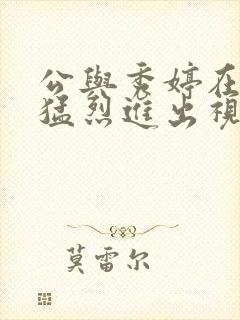 公與秀婷在
猛烈進出視
莫雷尔